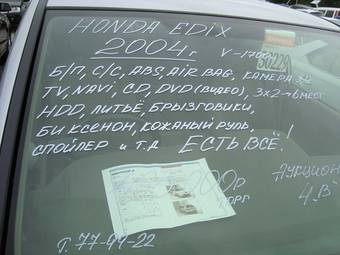 HONDA EDIX
2004г V-1700
Б/П, С/С, ABS, AIR BAG, КАМЕРА
TV, NAVI, CD, DVD (ВИДЕО), 3x2→6МЕСТ
HDD, ЛИТЬЁ, БРЫЗГОВИКИ,
БИ КСЕНОН, КОЖАНЫЙ РУЛЬ,
СПОЙЛЕР И Т.Д ЕСТЬ ВСЁ!
АУКЦИОН
4.В
Т. 77-99-22